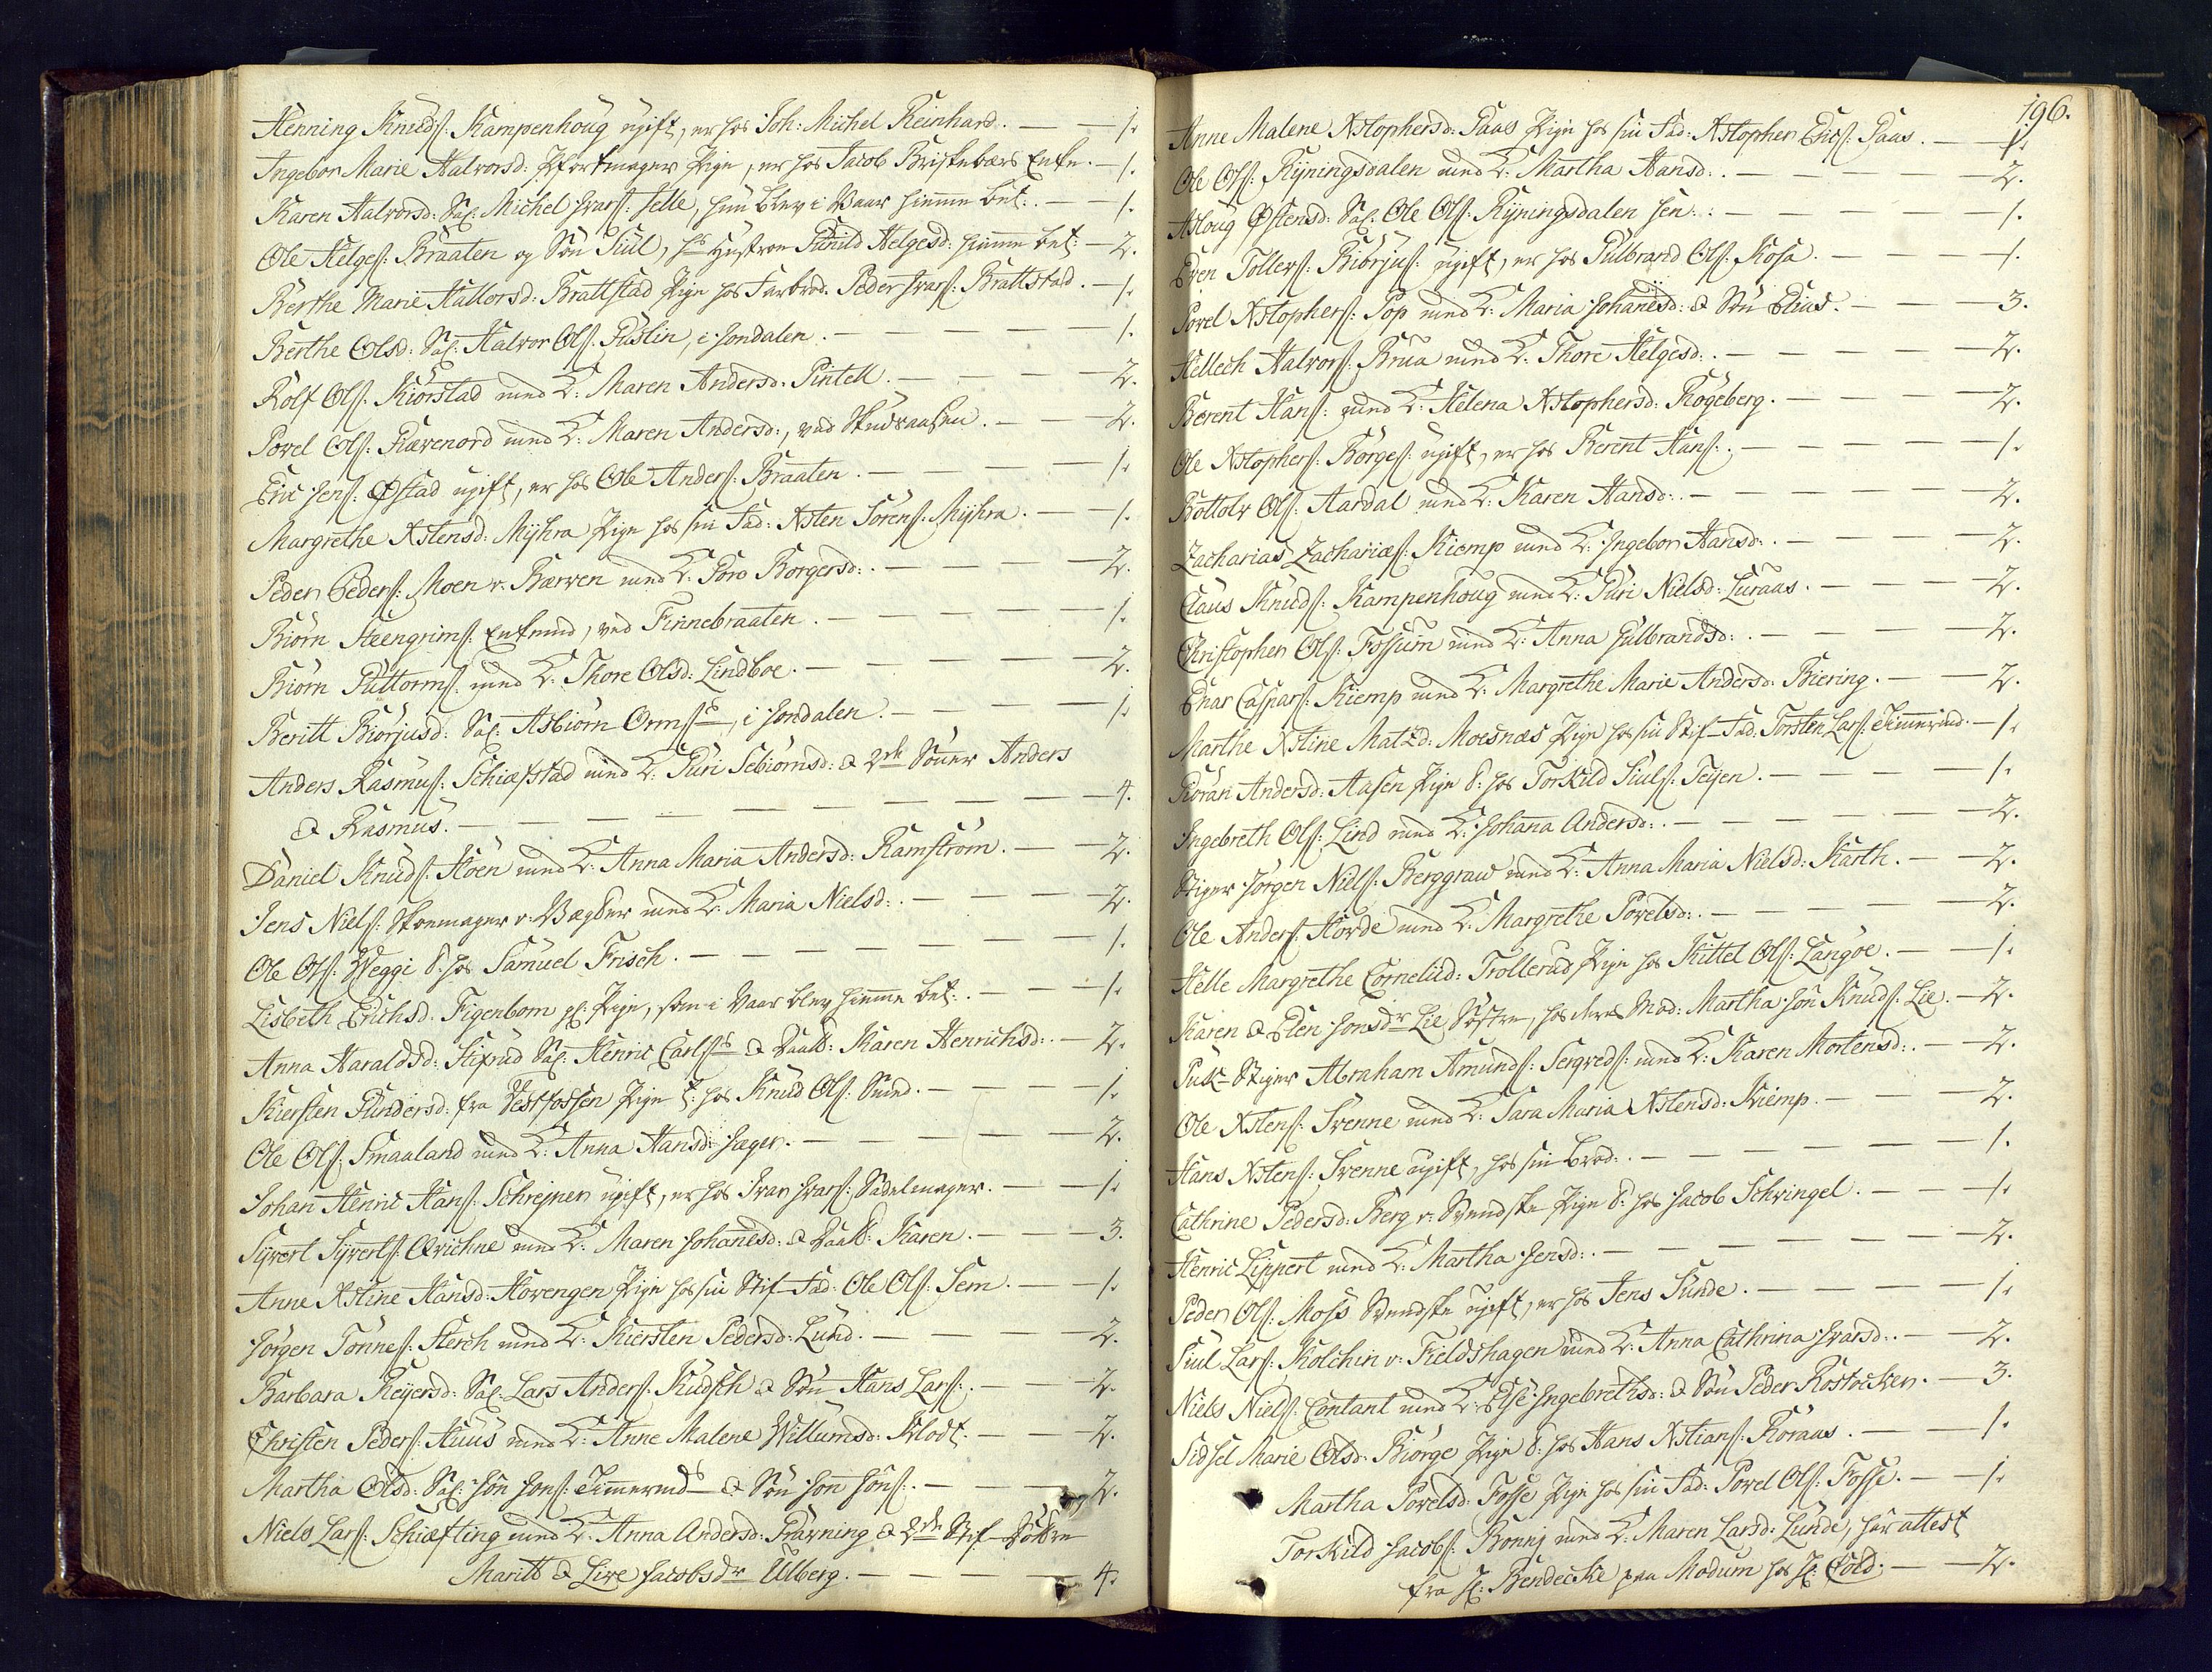 Henning Knuds: Kampenhoug ugift, er hos Joh: Michel Reinhard. — — 1.
Ingebor Marie Halvorsd: Pige, er hos Jacob Enke. — 1.
Karen Halvorsd: Sal: Michel Ivars: Jelle, hun blev i Vaar hiemme bet: . — — 1.
Ole Helges: Braaten og Søn Juul, hs Hustroe Gunild Helgesd: hiemme bet: — 2.
Berthe Marie Hallorsd: Brattstad Pige hos Farbrod: Peder Ivars: Brattstad. — 1.
Berthe Olsd: Sal: Halvor Ols: Puslin, i Jondalen. — — — — 1.
Rolf Ols: Kiørstad med K: Maren Andersd: Pintell. — — — — 2.
Povel Ols: Rævenord med K: Maren Andersd:, ved — — 2.
Eric Jens: Østad ugift, er hos Ole Anders: Braaten. — — — — 1.
Margrethe Xstensd: Myhra Pige hos sin Fad: Xsten Sørens: Myhra. — — 1.
Peder Peders: Moen v: Bærven med K: Poro Borgersd: . — — — — 2.
Biørn Steengrims: Enkemd, ved Finnebraaten. — — — — 1.
Biørn Guttorms: med K: Thore Olsd: Lindboe. — — — — 2.
Beritt Biørjusd: Sal: Asbiørn Orms, i Jondalen. — — — — 1.
Anders Rasmus: Schiæfstad med K: Guri Sebiørnsd: & 2de Sønner Anders
& Rasmus. — — — — — — 4.
Daniel Knuds: Hoen med K: Anna Maria Andersd: Ramstrøm. — — 2.
Jens Niels: Skoemager v: Vægter med K: Maria Nielsd: . — — — 2.
Ole Ols: Weggi t: hos Samuel Frisch. — — — — — 1.
Lisbeth Erichsd: Figenbom gl: Pige, som i Vaar blev hiemme bet: . — — — 1.
Anna Haraldsd: Stifrud Sal: Henric Carls & Daatt: Karen Henrichsd: . — 2.
Kiersten Gundersd: fra Vestfossen Pige t: hos Knud Ols: Sund. — — — 1.
Ole Ols: Smaaland med K: Anna Hansd: Jæger. — — — — 2.
Johan Henric Hans: Schrejner ugift, er hos Ivar Ivars: Sadelmager. — — 1.
Syvert Syverts: Qvichne med K: Maren Johanesd: & Daatt: Karen. — — 3.
Anne Xstine Hansd: Hovengen Pige hos sin Stif-Fad: Ole Ols: Sem. — — 1.
Jørgen Tønnes: Sterch med K: Kiersten Pedersd: Lund. — — — — 2.
Barbara Reyersd: Sal: Lars Anders: Kudsch & Søn Hans Lars: . — — 2.
Christen Peders: Huus med K: Anne Malene Willumsd: Klodt. — — 2.
Martha Olsd: Sal: Jon Jons: Timmermds & Søn Jon Jons: . — — — 2.
Niels Lars: Schiæfting med K: Anna Andersd: Prærning & 2de Stif-Døttre
Maritt & Live Jacobsdr Ulberg. — — — — 4.
196.
Anne Malene Xstophersd: Paas Pige hos sin Fad: Xstopher Erics: Paas. — 1.
Ole Ols: Ryningsdalen med K: Martha Hansd: . — — — — 2.
Asloug Østensd: Sal: Ole Ols: Ryningsdalen sen: . — — — — 1.
Even Tollevs: Biørjus: ugift, er hos Gulbrand Ols: Kosa. — — — 1.
Povel Xstophers: Pop med K: Maria Johanesd: & Søn Elias. — — — 3.
Hellech Halvors: Brua med K: Thore Helgesd: . — — — — 2.
Berent Hans: med K: Helena Xstophersd: Røgeberg. — — — 2.
Ole Xstophers: Børges: ugift, er hos Berent Hans: . — — — — 1.
Bottolv Ols: Aardal med K: Karen Hansd: . — — — — 2.
Zacharias Zacharias: Kiemp med K: Ingebor Hansd: . — — — — 2.
Claus Knuds: Kampenhoug med K: Guri Nielsd: Luraas. — — — 2.
Christopher Ols: Fossum med K: Anna Gulbrandsd: . — — — 2.
Enar Caspars: Kiemp med K: Margrethe Marie Andersd: Biering. — — 2.
Marthe Xstine Matzd: Moesnæs Pige hos sin Stif-Fad: Torsten Lars: Timermd. — 1.
Gøran Andersd: Aasen Pige t: hos Torkild Juuls: Teyen. — — — — 1.
Ingebreth Ols: Lind med K: Johana Andersd: . — — — — 2.
Stiger Jørgen Niels: Berggraw med K: Anna Maria Nielsd: Karth. — — 2.
Ole Anders: Hovde med K: Margrethe Povelsd: . — — — — 2.
Helle Margrethe Cornelisd: Trollerud Pige hos Kittel Ols: Langøe. — — 1.
Karen & Elen Jonsdr Lie Søstre, hos deres Mod: Martha Jon Knuds: Lie. — 2.
Puk-Stiger Abraham Amunds: Sergveds: med K: Karen Mortensd: . — — 2.
Ole Xstens: Svenne med K: Sara Maria Xstensd: Kiemp. — — — 2.
Hans Xstens: Svenne ugift, hos sin Brod: . — — — — — 1.
Cathrine Pedersd: Berg v: Svendske Pige t: hos Jacob Schvingel. — — 1.
Henric Lippert med K: Martha Jensd: . — — — — — 2.
Peder Ols: Moss Svendske ugift, er hos Jens Sunde. — — — — 1.
Juul Lars: Kolchin v: Fieldshagen med K: Anna Cathrina Ivarsd: . — — 2.
Niels Niels: Contant med K: Else Ingebrethsd: & Søn Peder Rostocken. — 3.
Sidsel Marie Olsd: Biørge Pige t: hos Hans Xstians: Røraas. — — — 1.
Martha Povelsd: Fosse Pige hos sin Fad: Povel Ols: Fosse. — — 1.
Torkild Jacobs: Bonni med K: Maren Larsd: Lunde, har attest
fra H: Bendecke paa Modum hos H: Cold. — — 2.